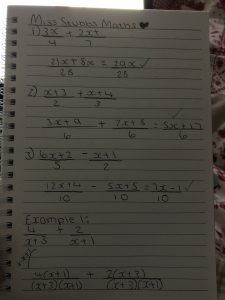 Miss Stubbs Maths ♥
1) 3x/4 + 2x/7
21x + 8x/28 = 29x/28 ✓
2) x+3/2 + x+4/3
3x+9/6 + 2x+8/6 = 5x+17/6 ✓
3) 6x+2/5 - x+1/2
12x+4/10 - 5x+5/10 = 7x-1/10 ✓
Example 1:
4/x+3 + 2/x+1
4(x+1)/(x+3)(x+1) + 2(x+3)/(x+3)(x+1)